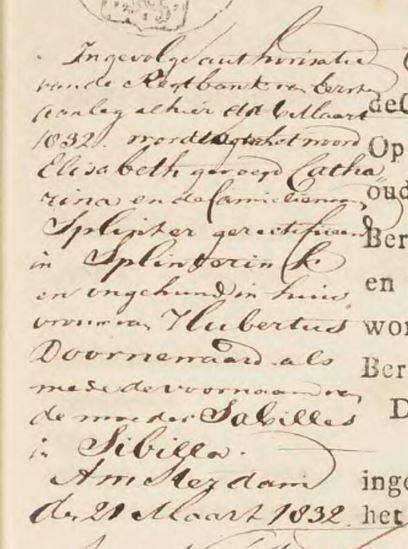 Ingevolge authorisatie
van de Regtbank van Eersten
aanleg alhier dd 6 Maart
1832. wordt het woord
Elisabeth gevoegd Catha
rina en de familienaam
Splinter gerectificeerd
in Splinterink
en ongehuwd in huis
vrouw van Hubertus
Doorneward als
mede de voornaam van
de moeder Sabilles
in Sibilla.
Amsterdam
den 21 Maart 1832
de
Op
oud
Ber
en
wor
Ber
D
inge
het